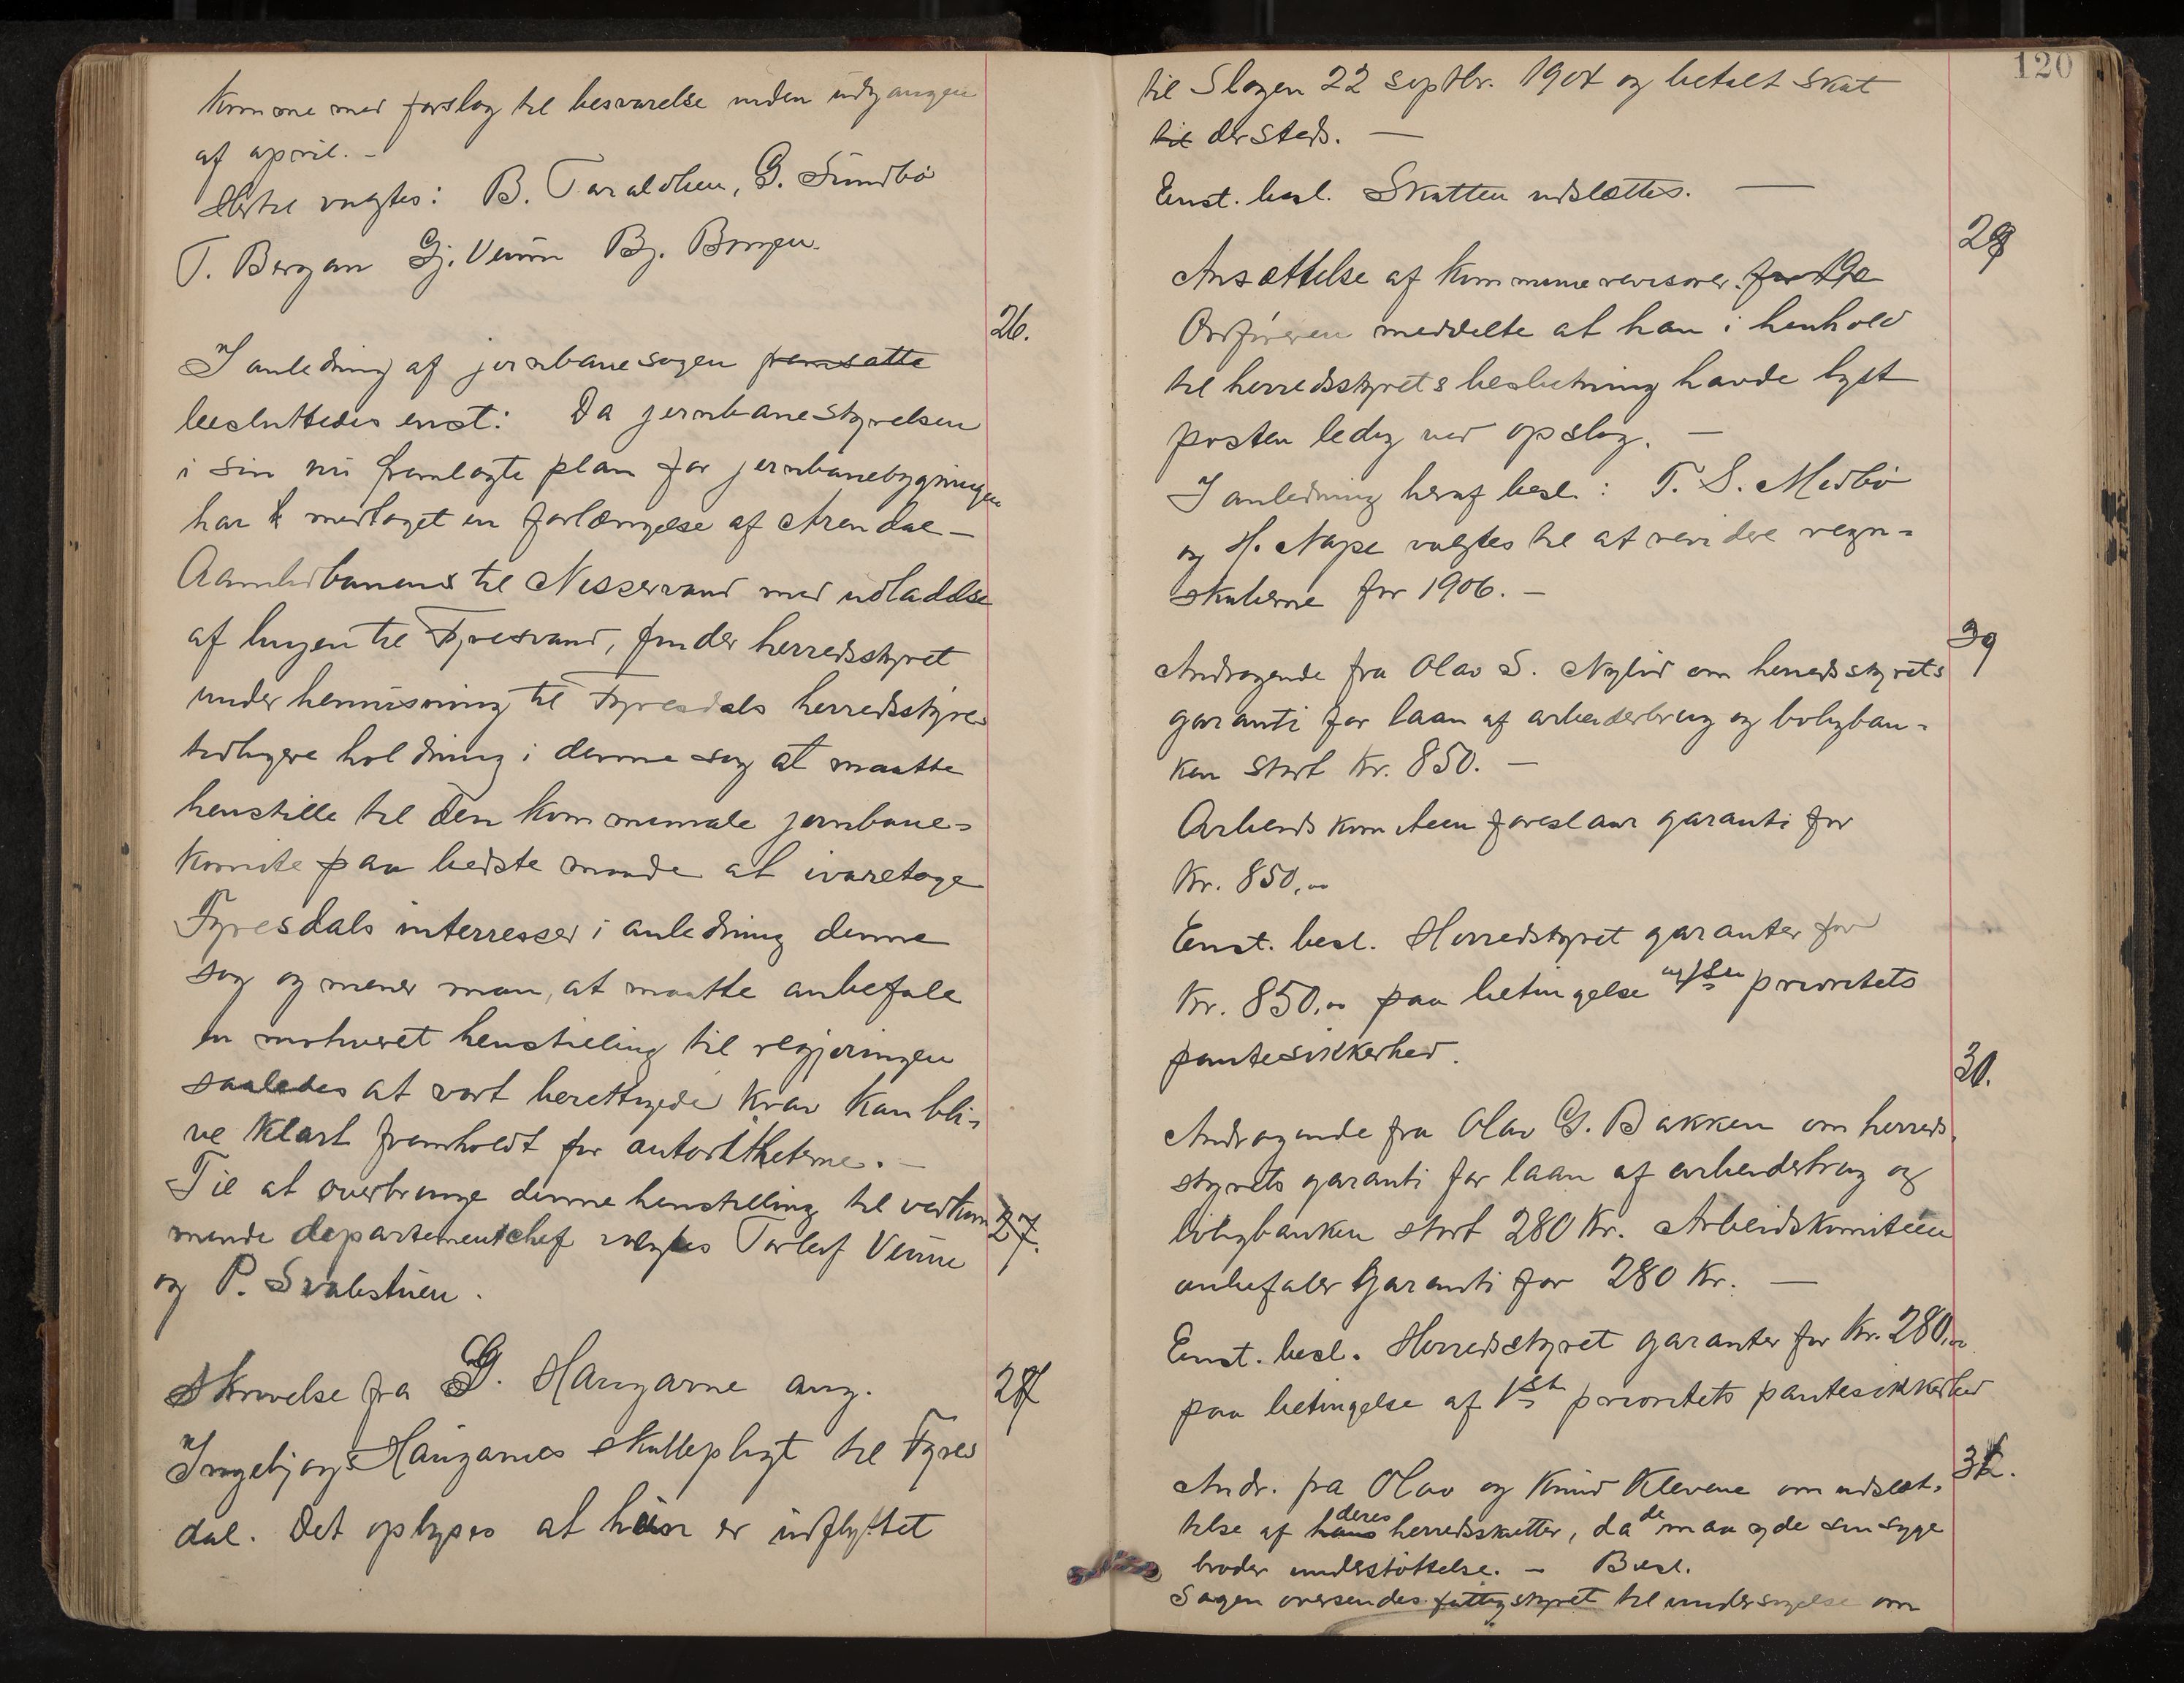 komme med forslag til besvarelse inden udgangen
af april. –
Hertil valgtes: B. Taraldlien, G. Sundbö
T. Bergan Gj. Veum Bj. Borgen.
26.
I anledning af jernbanesagen fremsatte
besluttedes enst: Da jernbanestyrelsen
i sin nu fremlagte plan for jernbanebygningen
har medtaget en forlængelse af Arendal –
Aamlibanens til Nisservand med udladelse
af linjen til Fyresvand, finder herredsstyret
under henvisning til Fyresdals herredsstyres
tidligere holdning i denne sag at maatte
henstille til den kommunale jernbane=
komite paa bedste maade at ivaretage
Fyresdals interresser i anledning denne
sag og mener man, at maatte anbefale
en motiveret henstilling til regjeringen
saaledes at vort berettigede krav kan bli=
ve klart fremholdt for autoriteterne. –
Til at overbringe denne henstilling til vedkom
27.
mende departementchef valgtes Torleif Veum
og P. Svalestuen.
28
Skrivelse fra G. Haugarne ang.
Ingebjorgs Haugarnes skattepligt til Fyres
dal. Det oplyses at hun er indflyttet
120
til Slagen 22 septbr. 1904 og betalt skat
til dersteds. —
Enst. besl. Skatten udslettes. —
29
Ansættelse af kommunerevisorer. for
Ordføreren meddelte at han i henhold
til herredsstyrets beslutning havde lyst
posten ledig ved opslag. –
I anledning heraf besl.: T. S. Medbö
og H. Nape valgtes til at revidere regn=
skaberne for 1906. –
30
Andragende fra Olav S. Nylid om herredsstyrets
garanti for laan af arbeiderbrug og boligban=
ken stort kr. 850. –
Arbeidskomiteen foreslaar garanti for
kr. 850,00
Enst. besl. Herredstyret garanter for
kr. 850,00 paa betingelse af 1ste prioritets
pantesikkerhed.
31.
Andragende fra Olav G. Bakken om herreds=
styrets garanti for laan af arbeiderbrug og
boligbanken stort 280 kr. Arbeidskomiteen
anbefaler Garanti for 280 kr. —
Enst. besl. Herredsstyret garanter for kr. 280,00
paa betingelse af 1ste prioritets pantesikkerhed
32.
Andr. fra Olav og Knud Klevene om udslet=
telse af hans deres herredsskatter, da de maa yde sin syge
broder understöttelse. – Besl.
Sagen oversendes fattigstyret til undersøgelse om